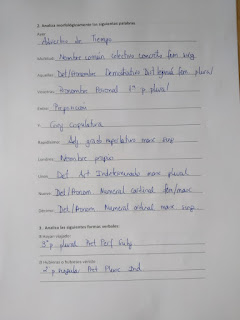 2. Analiza morfológicamente las siguientes palabras.
Ayer:
Adverbio de Tiempo
Multitud: Nombre común colectivo concreto fem sing
Aquellas: Det/Pronombre Demostrativo fem plural
Pronombre Personal 3ª p plural
Preposición
Conj copulativa
Rapidísimo: Adj grado superlativo masc sing
Nombre propio
Unos: Det Art Indeterminado masc plural
Nueve: Det/Pronom Numeral cardinal fem/masc
Décimo: Det/Pronom Numeral ordinal masc sing
3. Analiza las siguientes formas verbales:
3ª p plural Pret Perf
Hubieras o hubieses
2ª p singular Pret Ind